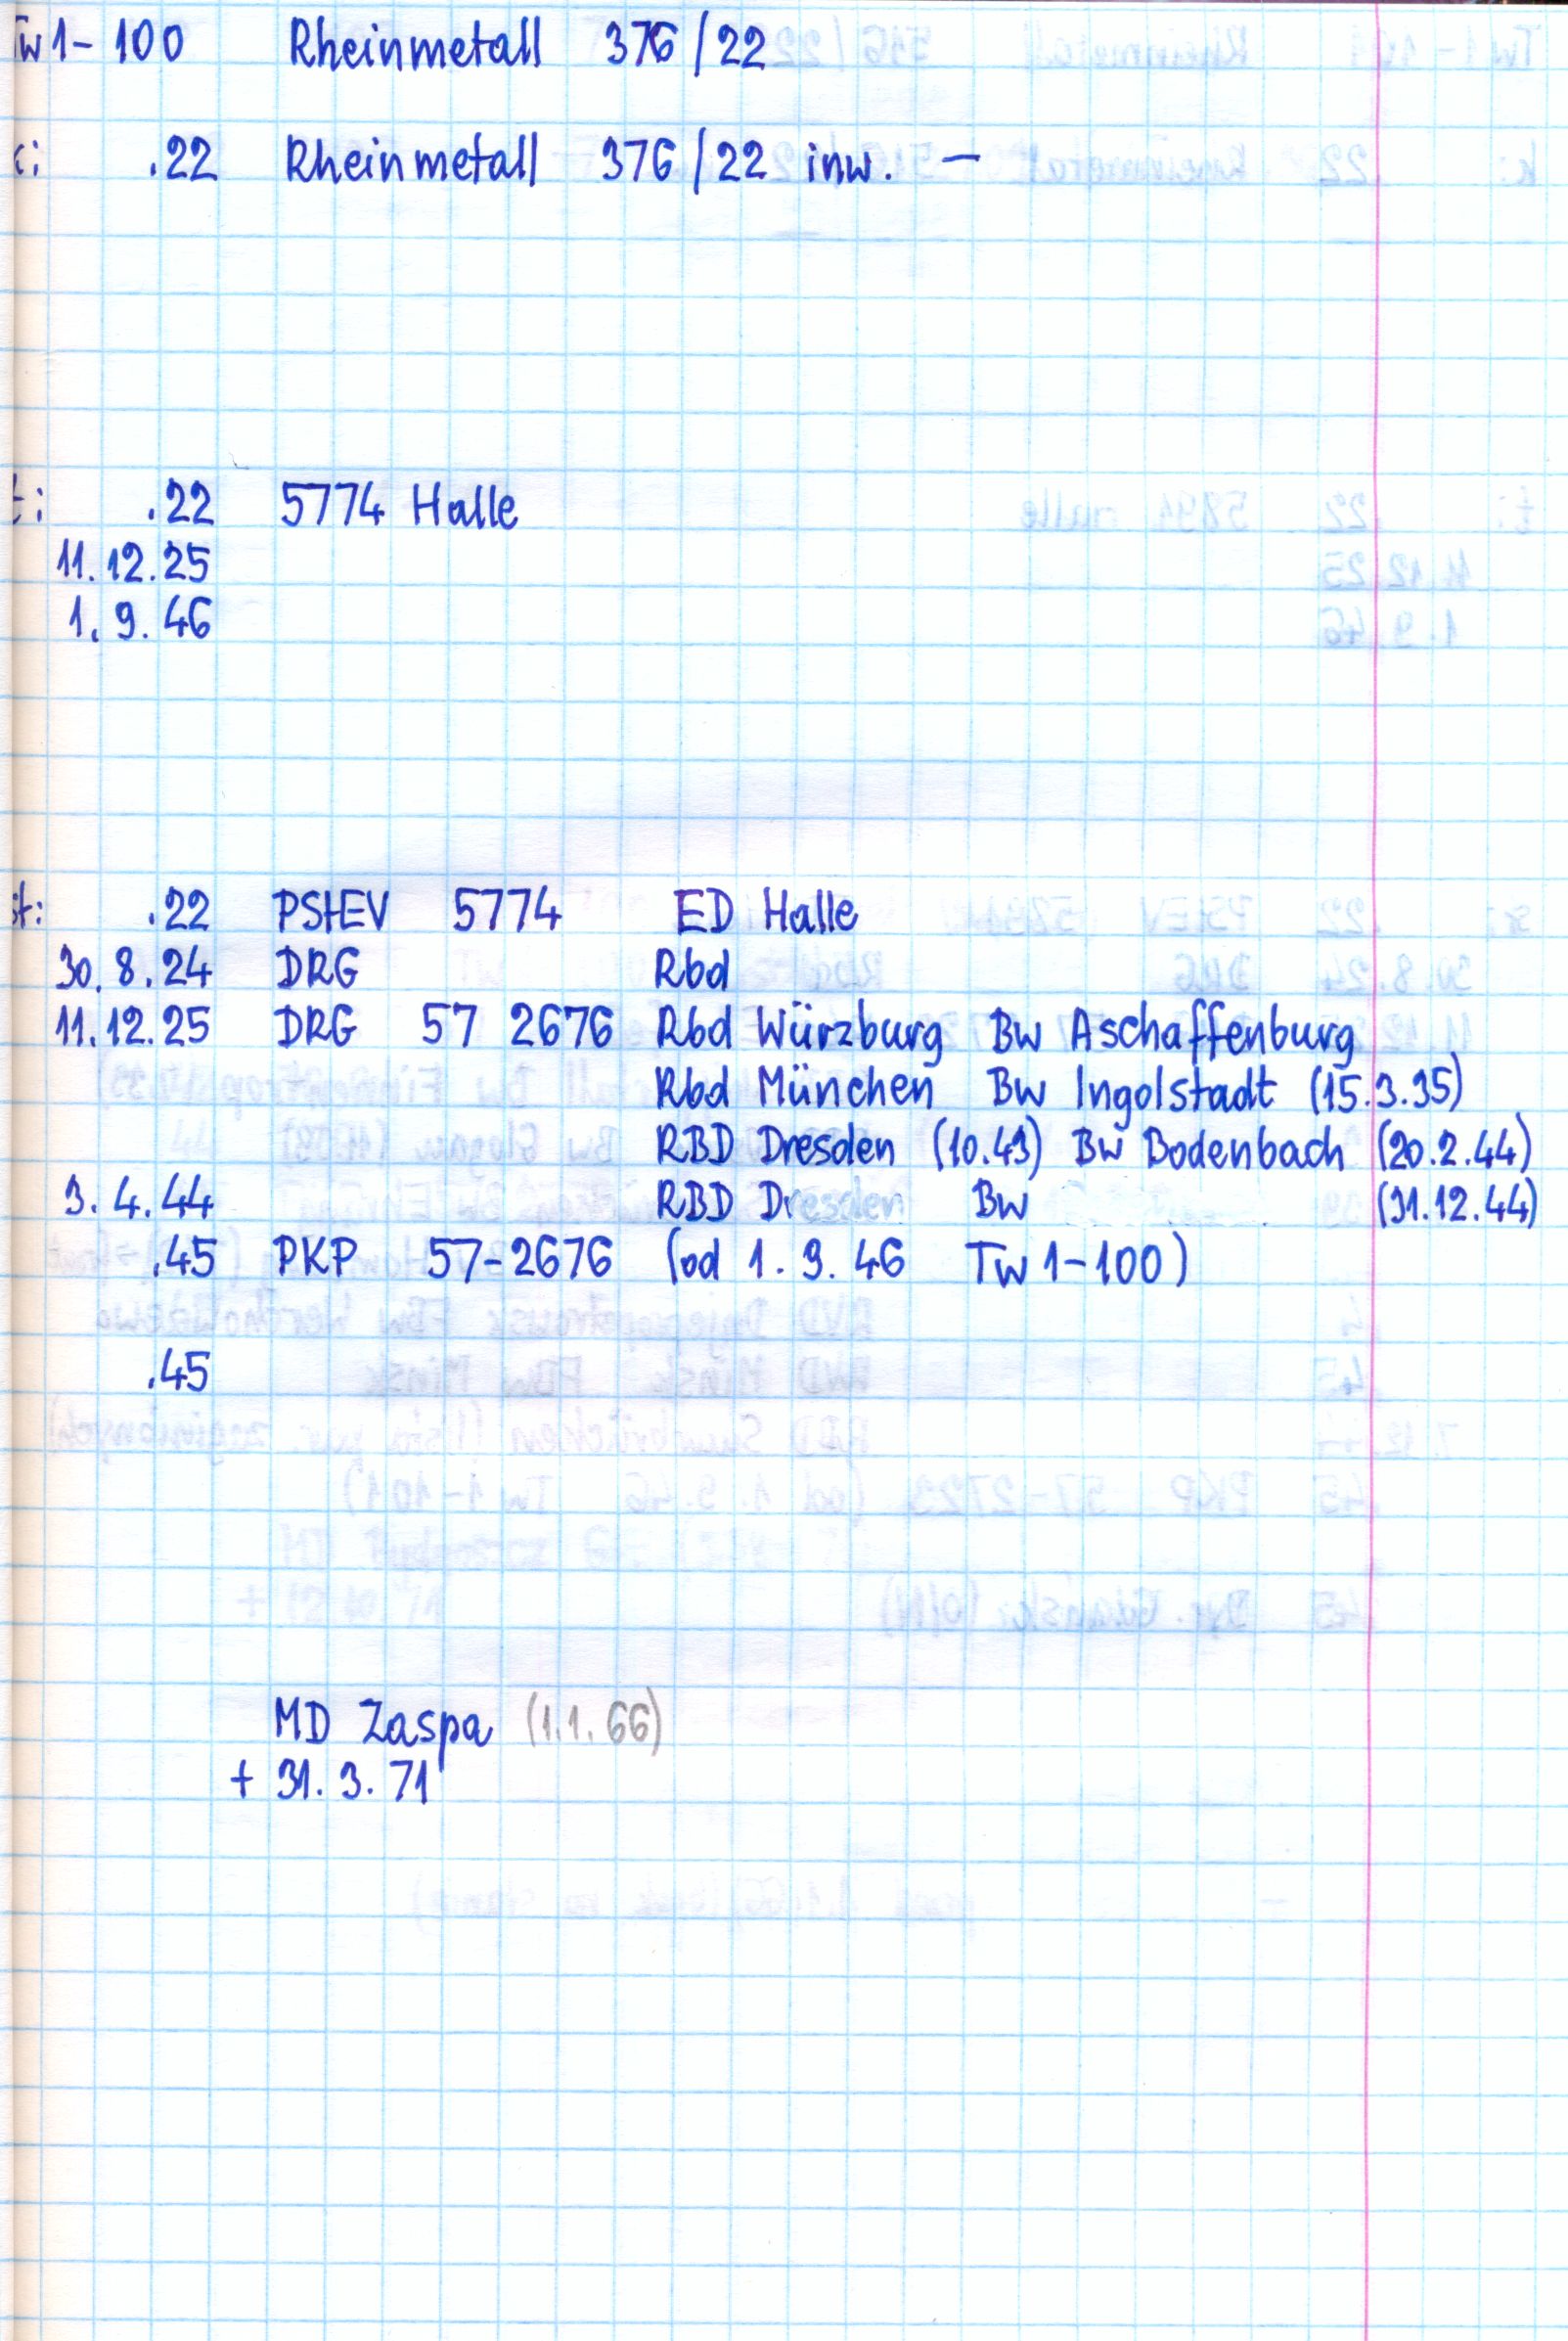 Tw 1-100 Rheinmetall 376/22
k: .22 Rheinmetall 376/22 inw. —
t: .22 5774 Halle
11.12.25
1.9.46
st: .22 PStEV 5774 ED Halle
30.8.24 DRG Rbd
11.12.25 DRG 57 2676 Rbd Würzburg Bw Aschaffenburg
Rbd München Bw Ingolstadt (15.3.35)
RBD Dresden (10.43) Bw Bodenbach (20.2.44)
3.4.44 RBD Dresden Bw (31.12.44)
.45 PKP 57-2676 (od 1.9.46 Tw 1-100)
.45
MD Zaspa (1.1.66)
+ 31.3.71